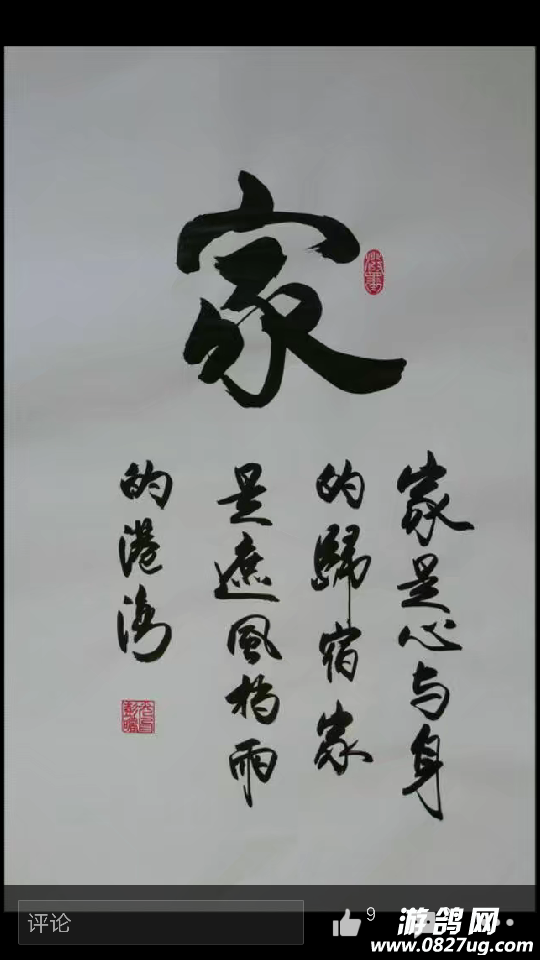 家
家是心与身
的歸宿家
是遮风档雨
的港湾
评论
9
游鸽网
www.0827ug.com